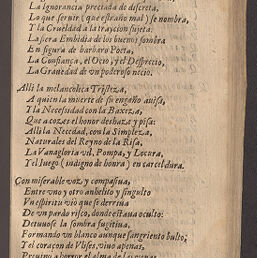 La Ignorancia preciada de discreta,
Lo que seruir (que estraño mal) se nombra,
Y la Crueldad a la trayció sujeta:
La fiera Embidia de los buenos sombra
En figura de barbaro Poeta,
La Confiança, el Ocio, y el Desprecio,
La Grauedad de vn poderoso necio.
Alli la melancolica Tristeza,
A quien la muerte de su engaño auisa,
Y la Necessidad con la Baxeza,
Que a cozes el honor deshaze y pisa:
Alli la Necedad, con la Simpleza,
Naturales del Reyno de la Risa,
La Vanagloria vil, Pompa, y Locura,
Y el Iuego (indigno de honra) en carcel dura.
Con miserable voz y compasiua,
Entre vno y otro anhelito y singulto
Vn espiritu vio que se derriua
De vn pardo risco, donde estaua oculto:
Detuuose la sombra fugitiua,
Formando vn blanco aunque sangriento bulto;
Y el coraçon de Vlises, viuo apenas,